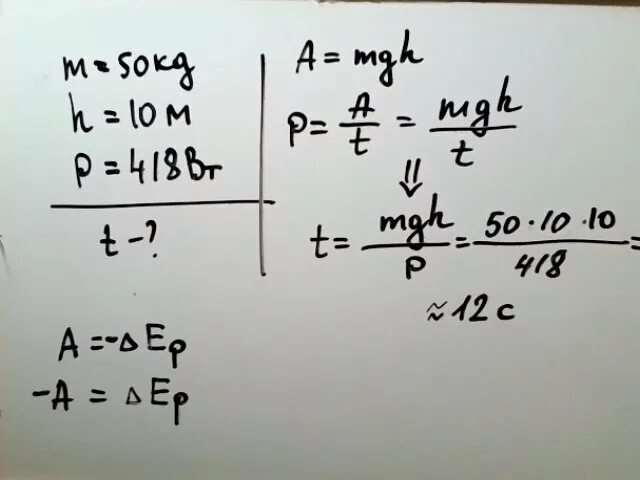 m = 50кg
h = 10 м
P = 418 Вт
t - ?
A = mgh
P = A/t = mgh/t
⇓
t = mgh/P = 50·10·10/418 =
≈ 12 с
A = -ΔEp
-A = ΔEp